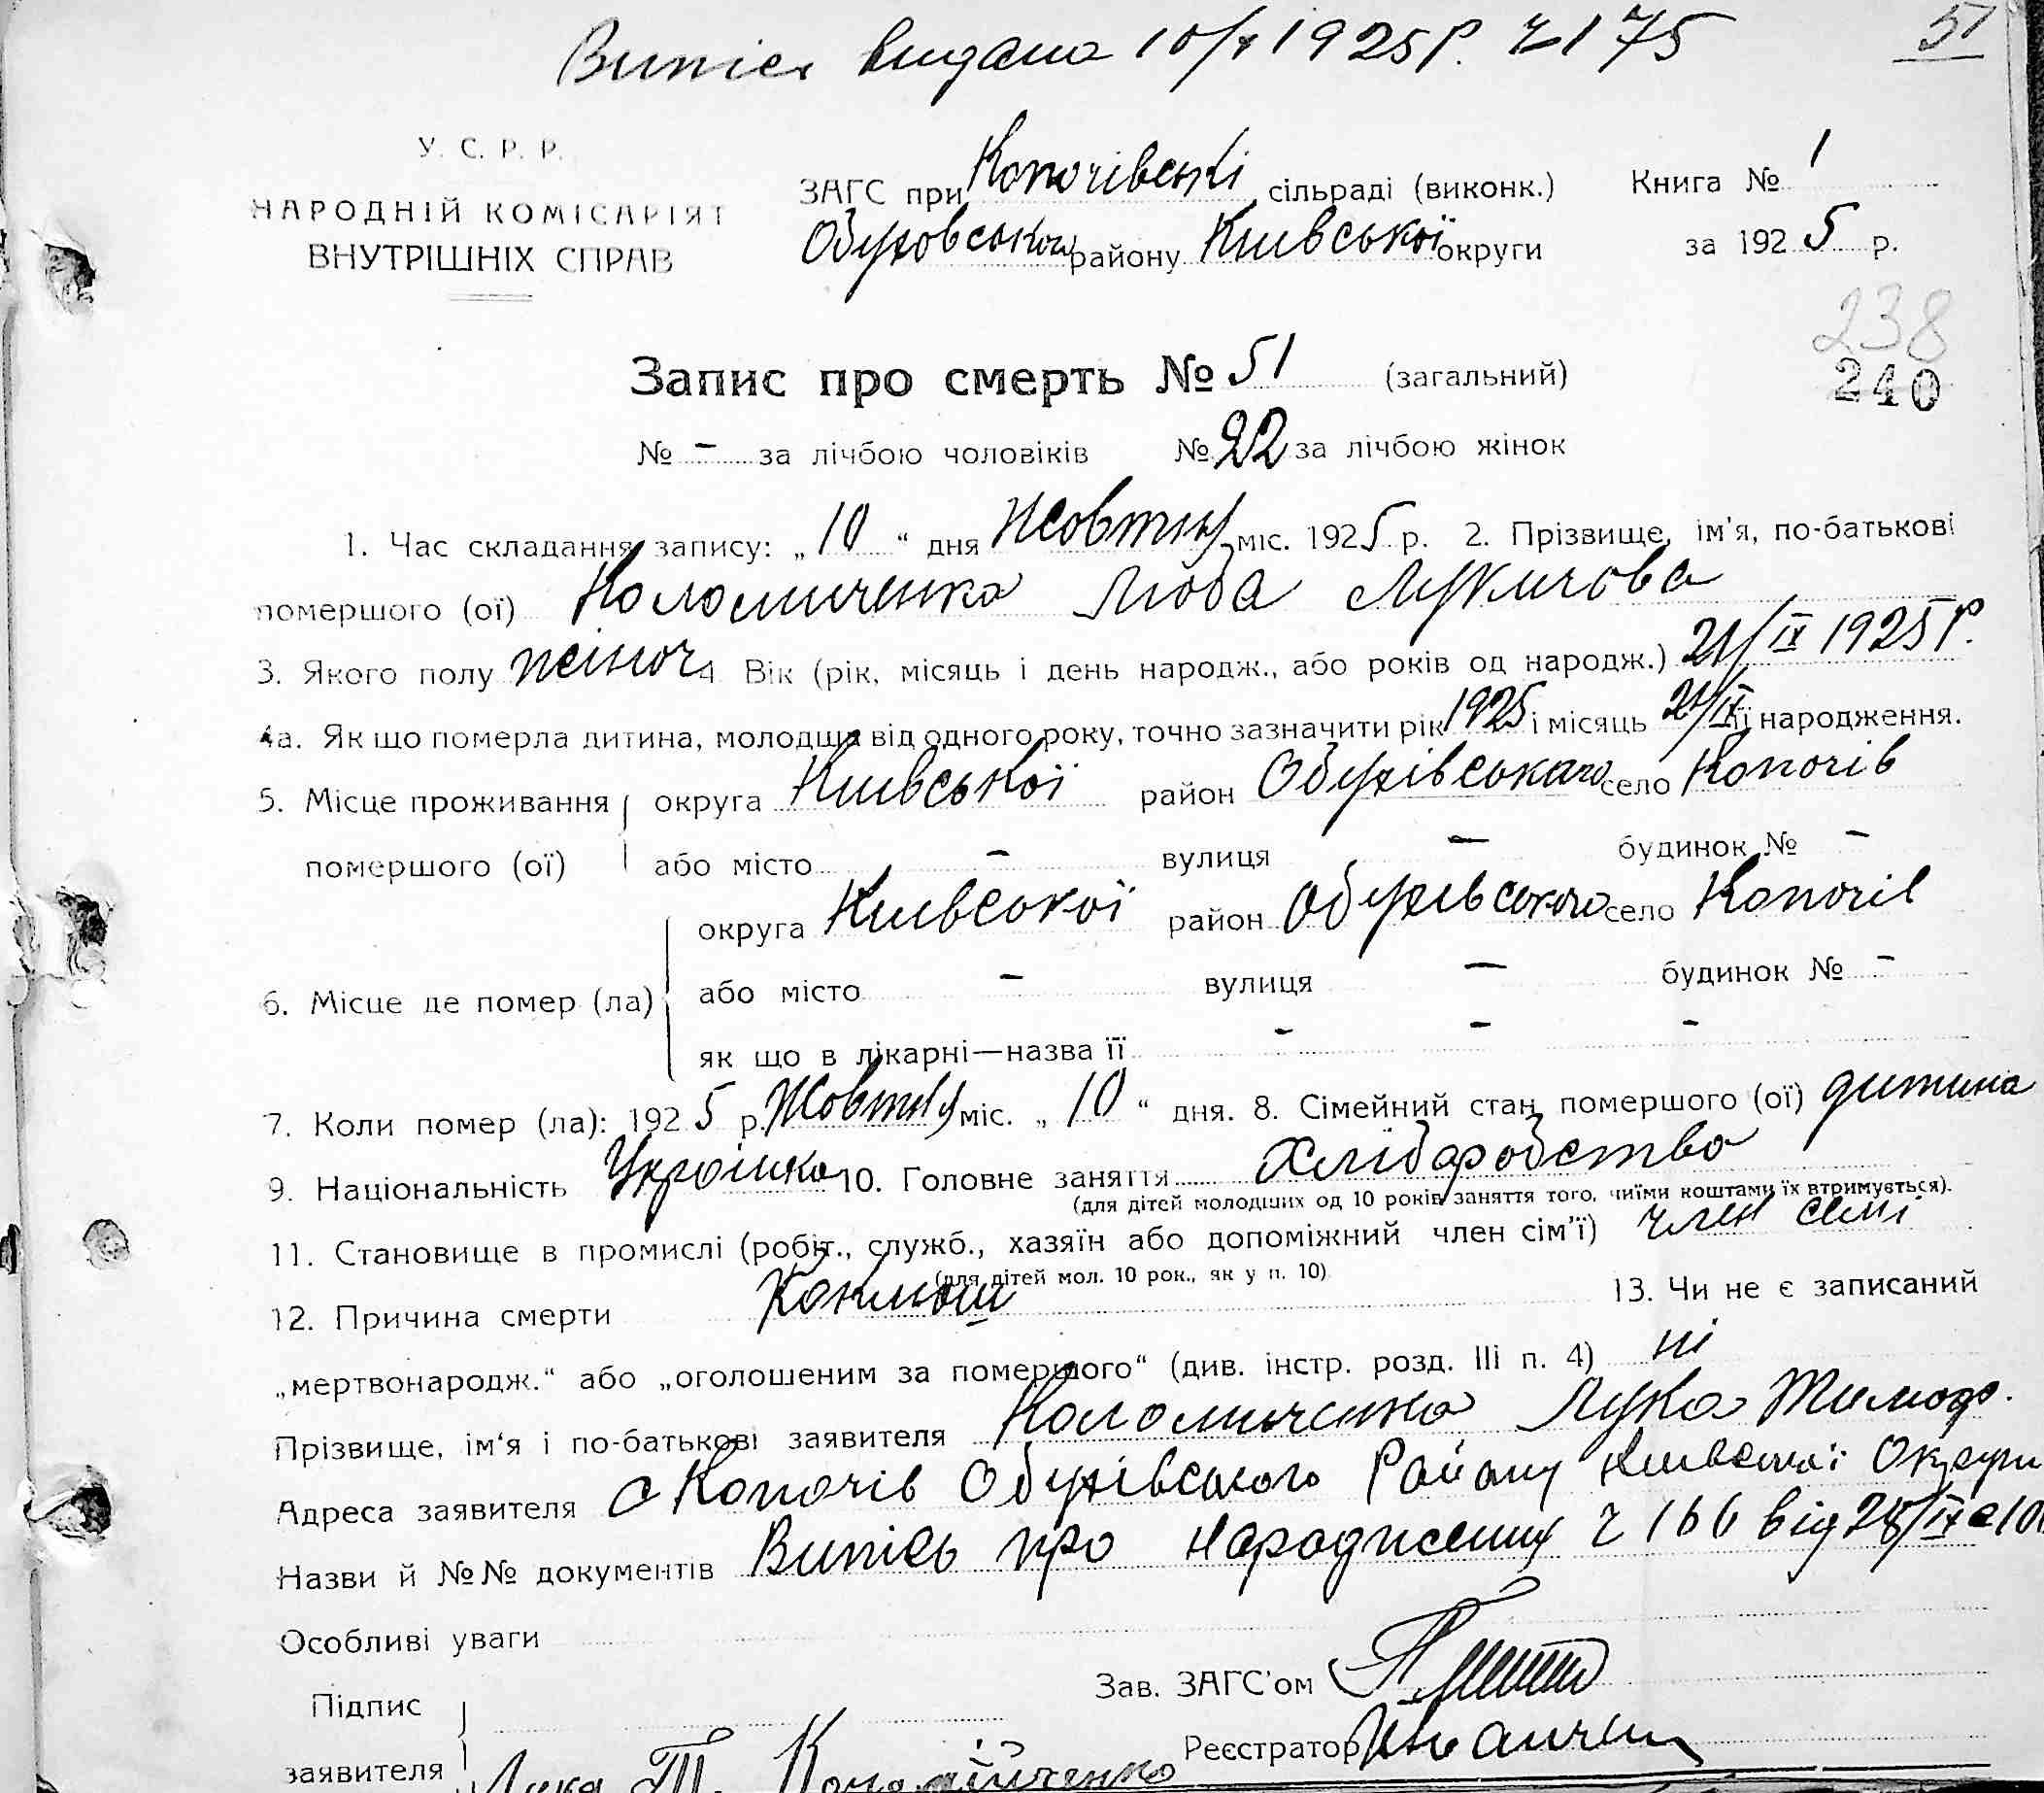 Випись видана 10/X 1925 р. ч 175
51
У. С. Р. Р.
НАРОДНІЙ КОМІСАРІЯТ
ВНУТРІШНІХ СПРАВ
ЗАГС при Копачівські сільраді (виконк.) Книга № 1
Обуховського району Київської округи за 1925 р.
238
240
Запис про смерть № 51 (загальний)
№ - за лічбою чоловіків № 22 за лічбою жінок
1. Час складання запису: „10“ дня Жовтня міс. 1925 р. 2. Прізвище, ім'я, по-батькові
помершого (ої) Коломиченко Люба Лукичова
3. Якого полу жіноч 4 Вік (рік, місяць і день народж., або років од народж.) 21/IX 1925 р.
4а. Як що померла дитина, молодша від одного року, точно зазначити рік 1925 і місяць 21/IX її народження.
5. Місце проживання округа Київської район Обухівського село Копачів
помершого (ої) або місто - вулиця - будинок № -
округа Київської район Обухівського село Копачів
6. Місце де помер (ла) або місто - вулиця - будинок № -
як що в лікарні—назва її - - -
7. Коли помер (ла): 1925 р. Жовтня міс. „10“ дня. 8. Сімейний стан помершого (ої) дитина
9. Національність Українка 10. Головне заняття Хліборобство
(для дітей молодших од 10 років заняття того, чиїми коштами їх втримується).
11. Становище в промислі (робіт., служб., хазяїн або допоміжний член сім'ї) член семі
(для дітей мол. 10 рок., як у п. 10)
12. Причина смерти Коклюш 13. Чи не є записаний
„мертвонародж.“ або „оголошеним за помершого“ (див. інстр. розд. III п. 4) ні
Прізвище, ім'я і по-батькові заявителя Коломиченко Лука Тимоф.
Адреса заявителя с Копачів Обухівського Району Київської Округи
Назви й №№ документів Випись про народження ч 166 від 28/IX
Особливі уваги
Зав. ЗАГС'ом
Підпис
Реєстратор
заявителя Лука Т. Коломійченко